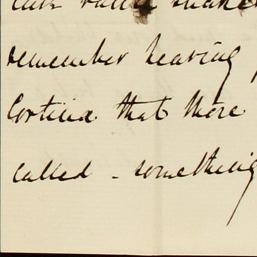 remember hearing
Cortina that there
called - something